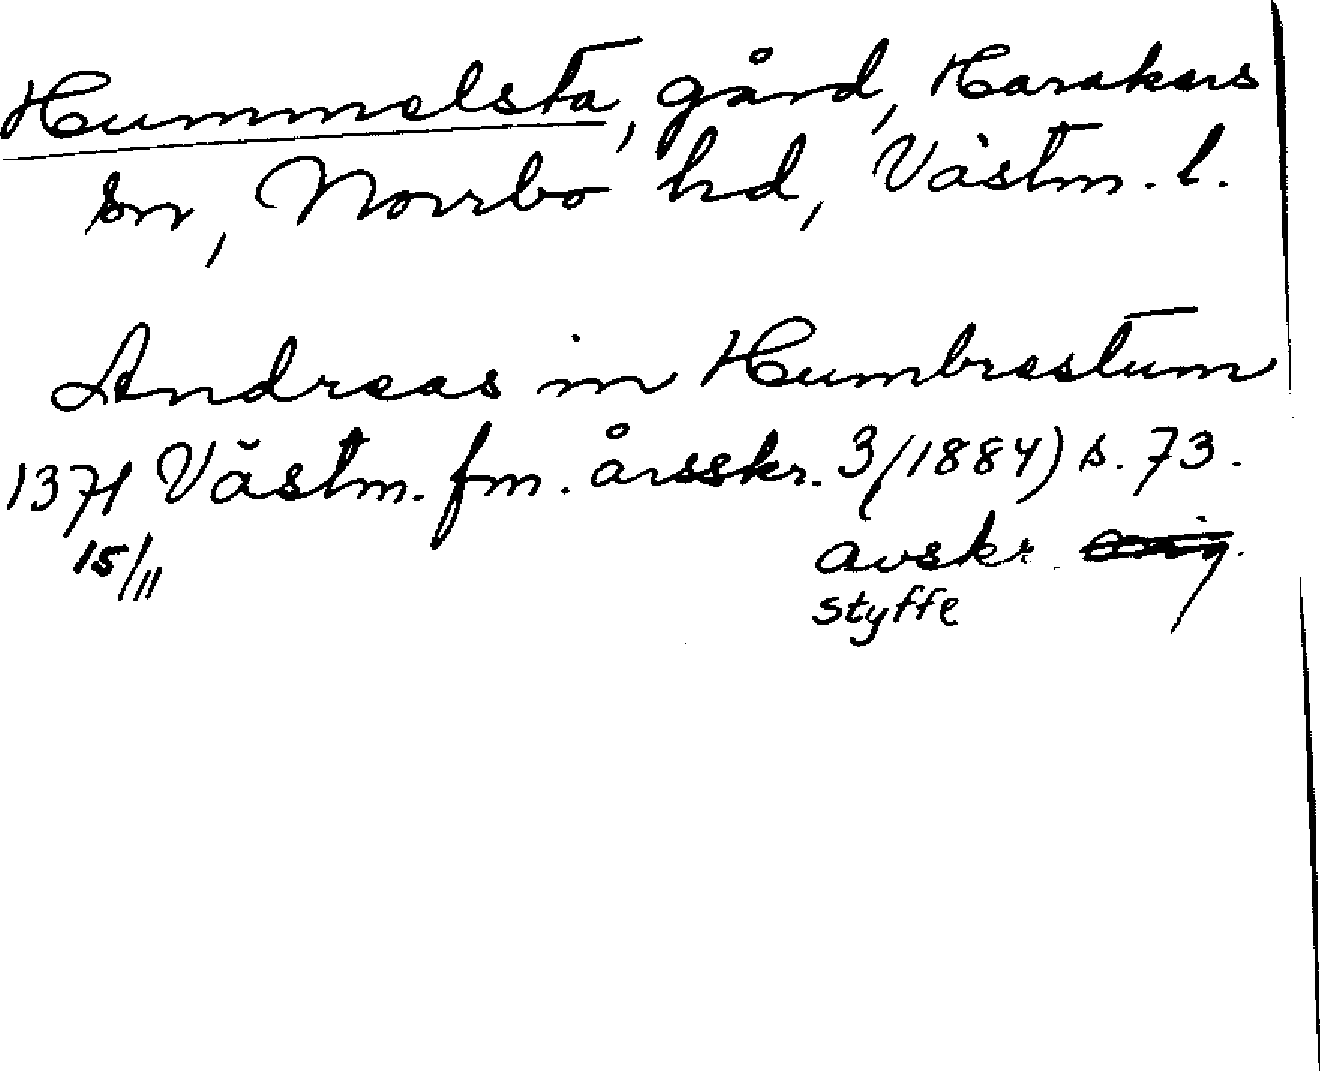 Hummelsta, gård, Harakers
sn, Norrbo hd, Västm. l.
Andreas in Humbrestum
1371 Västm. fm. årsskr. 3 (1884) s. 73.
15/11 avskr.
styffe